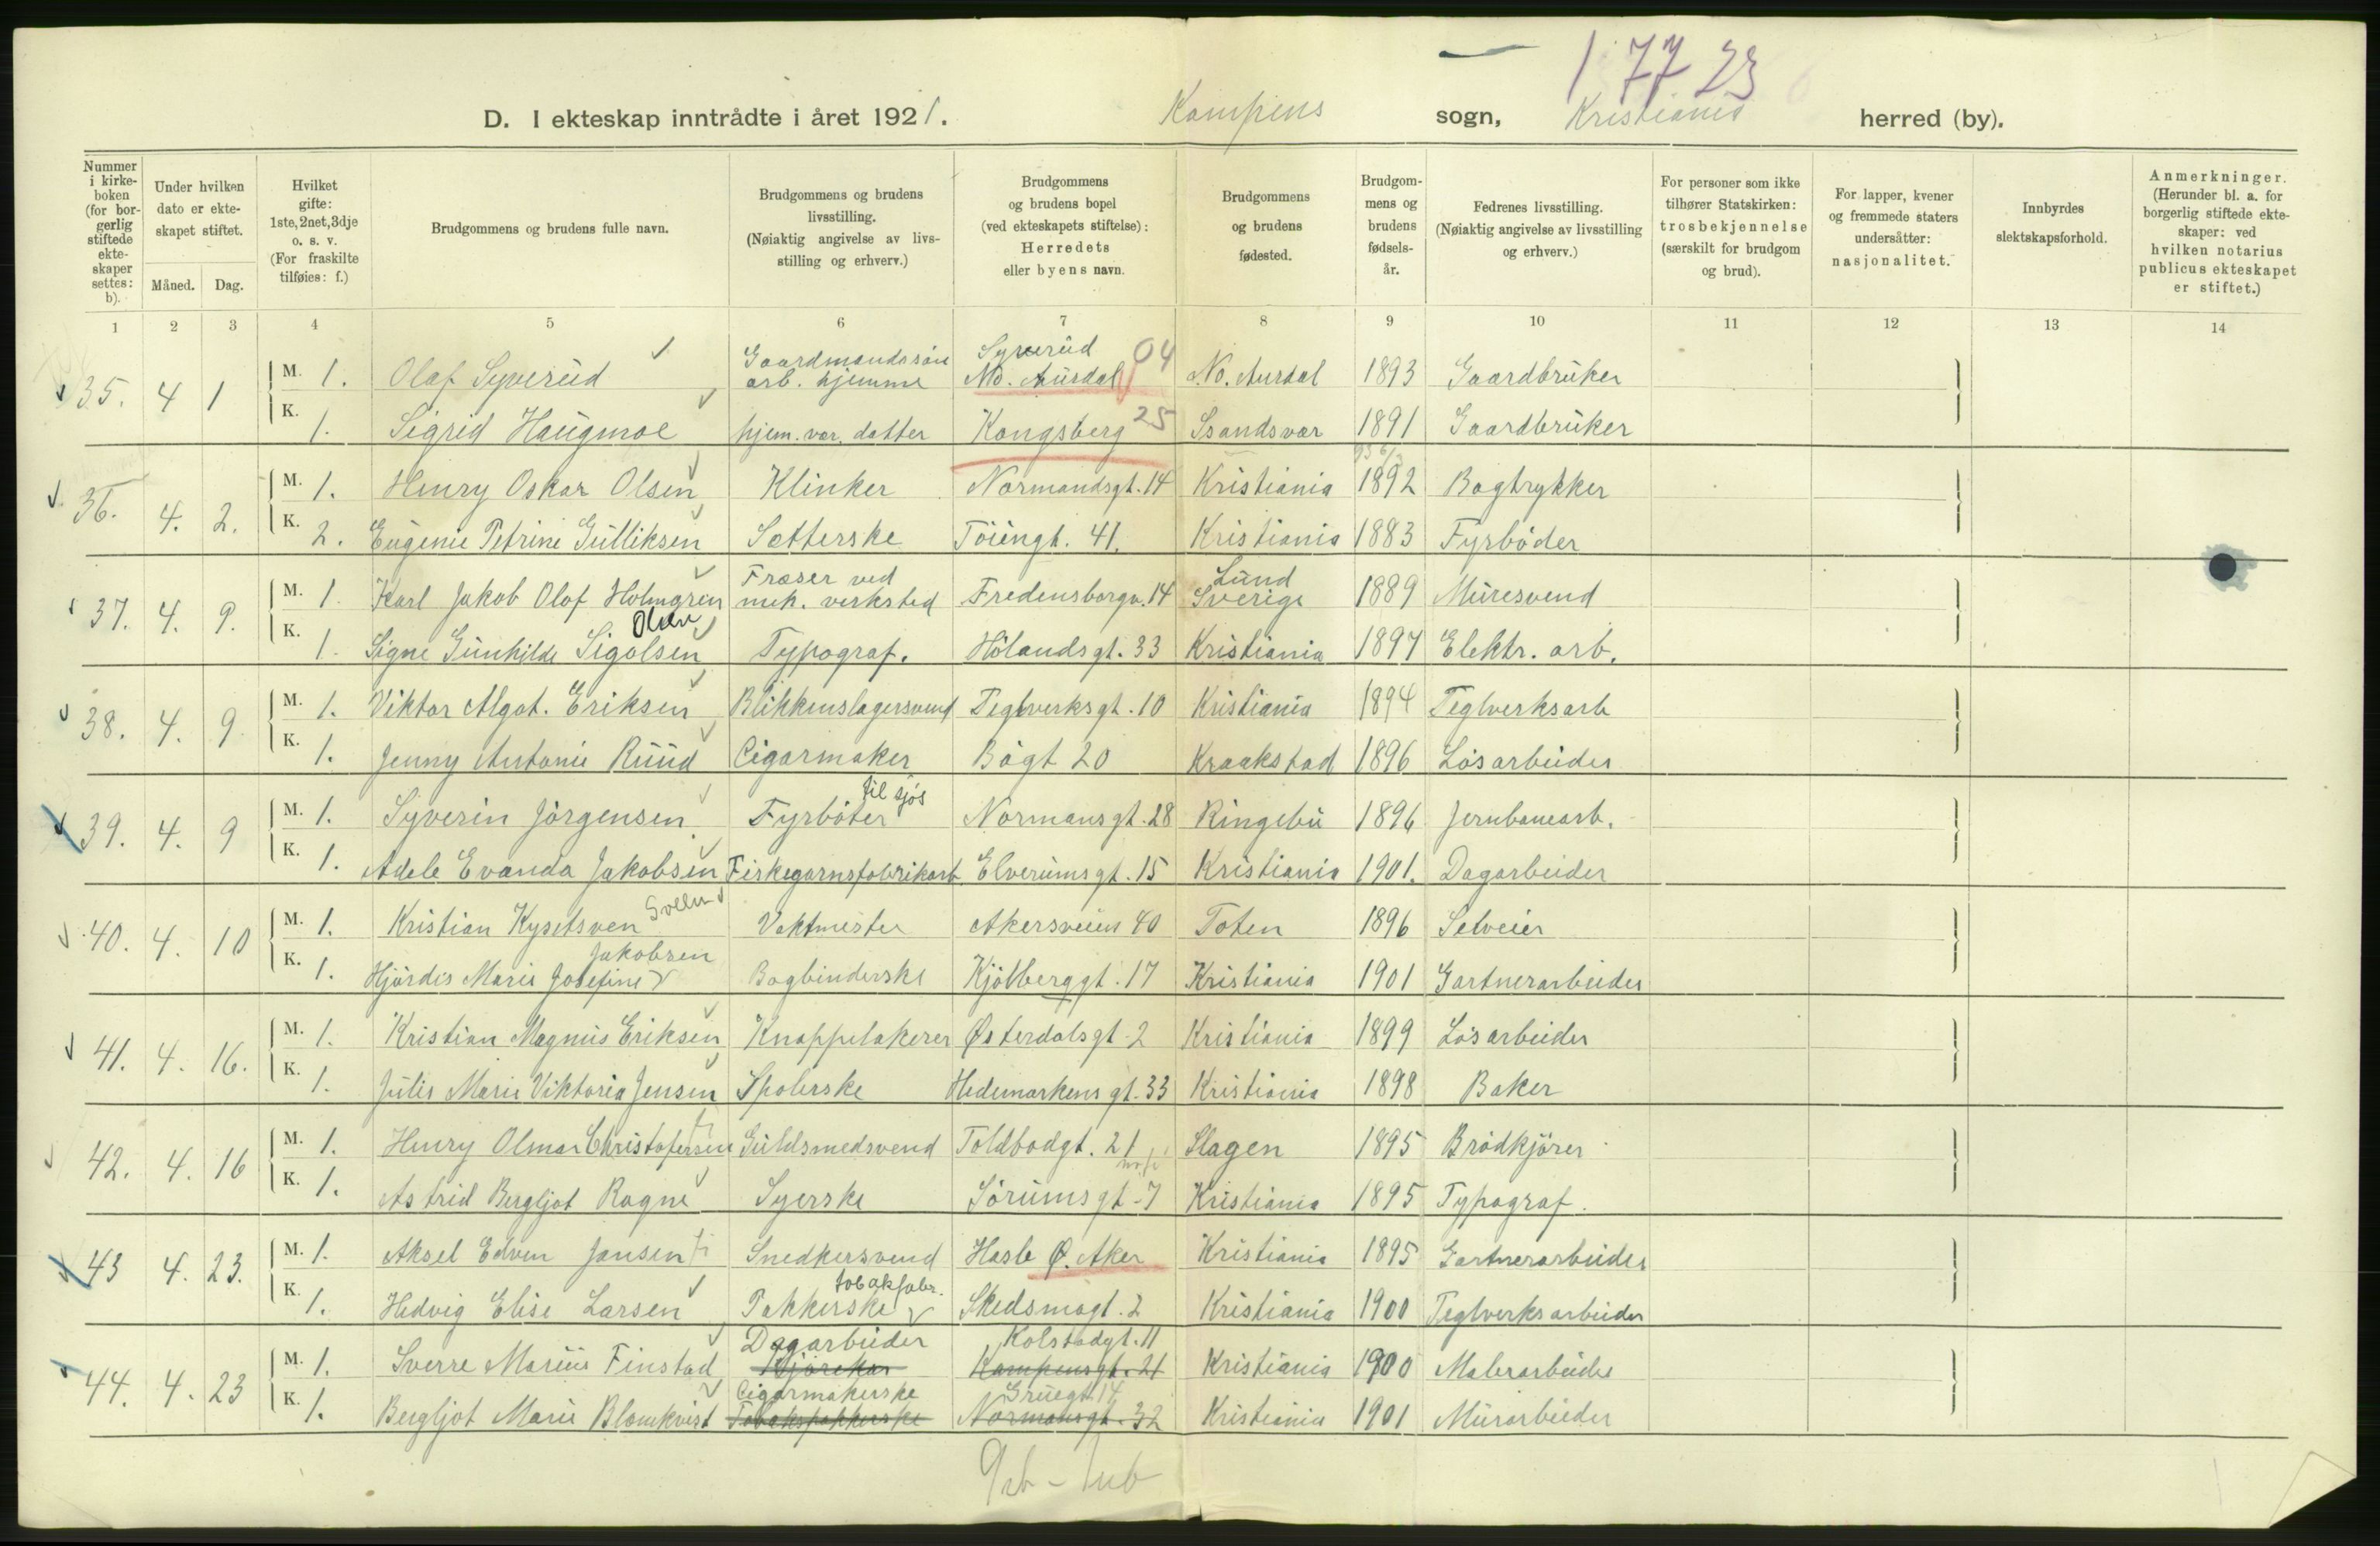 1 77 23
D. I ekteskap inntrådte i året 1921. Kampens sogn, Kristiania herred (by).
Nummer i kirke-boken (for bor-gerlig stiftede ekte-skaper settes: b).
Under hvilken dato er ekte-skapet stiftet.
Måned. Dag.
Hvilket gifte: 1ste, 2net, 3dje o. s. v. (For fraskilte tilføies: f.)
Brudgommens og brudens fulle navn.
Brudgommens og brudens livsstilling. (Nøiaktig angivelse av livs-stilling og erhverv.)
Brudgommens og brudens bopel (ved ekteskapets stiftelse): Herredets eller byens navn.
Brudgommens og brudens fødested.
Brudgom-mens og brudens fødsels-år.
Fedrenes livsstilling. (Nøiaktig angivelse av livsstilling og erhverv.)
For personer som ikke tilhører Statskirken: trosbekjennelse (særskilt for brudgom og brud).
For lapper, kvener og fremmede staters undersåtter: nasjonalitet.
Innbyrdes slektskapsforhold.
Anmerkninger. (Herunder bl. a. for borgerlig stiftede ekte-skaper: ved hvilken notarius publicus ekteskapet er stiftet.)
1 2 3 4 5 6 7 8 9 10 11 12 13 14
Gaardmandssøn Syverud 04
35. 4 1 M. 1. Olaf Syverud arb. hjemme No. Aurdal No. Aurdal 1893 Gaardbruker
K. 1. Sigrid Haugmoe hjem. vær. datter Kongsberg 25 Ssandsvær 1891 Gaardbruker
36. 4. 2. M. 1. Henry Oskar Olsen Klinker Normandsgt. 14 Kristiania 1892 Bogtrykker
K. 2. Eugenie Petrine Gulliksen Sætterske Töiengt. 41. Kristiania 1883 Fyrböder
Fræser ved Lund
37. 4. 9. M. 1. Karl Jakob Olof Holmgren mek. verksted Fredensborgv. 14 Sverige 1889 Muresvend
Olsen
K. 1. Signe Gunhilde Sigolsen Typograf. Hölandsgt. 33 Kristiania 1897 Elektr. arb.
38. 4. 9 M. 1. Viktor Algot. Eriksen Blikkenslagersvend Teglverksgt. 10 Kristiania 1894 Teglverksarb
K. 1. Jenny Antonie Ruud Cigarmaker Bögt 20 Kraakstad 1896 Lösarbeider
til sjös
39. 4. 9 M. 1. Syverin Jörgensen Fyrböter Normansgt. 28 Ringebu 1896 Jernbanearb.
K. 1. Adele Evanda Jakobsen Fiskegarnsfabrikarb Elverumsgt. 15 Kristiania 1901. Dagarbeider
Sveen
40. 4. 10 M. 1. Kristian Kysetsven Vaktmester Akersveien 40 Toten 1896 Selveier
Jakobsen
K. 1. Hjördis Marie Josefine Bogbinderske Kjölberggt. 17 Kristiania 1901 Gartnerarbeider
41. 4. 16. M. 1. Kristian Magnus Eriksen Knappelakerer Østerdalsgt. 2 Kristiania 1899 Lösarbeider
K. 1. Julie Marie Viktoria Jensen Spolerske Hedemarkens gt. 33 Kristiania 1898 Baker
42. 4. 16 M. 1. Henry Olmar Christofersen Guldsmedsvend Toldbodgt. 21 Slagen 1895 Brödkjörer
K. 1. Astrid Bergljot Ragne Syerske Sörumsgt. 7 Kristiania 1895 Typograf.
43 4. 23. M. 1. Aksel Edven Jansen Snedkersvend Hasle Ø. Aker Kristiania 1895 Gartnerarbeider
tobakfabr.
K. 1. Hedvig Elise Larsen Pakkerske Skedsmogt. 2 Kristiania 1900 Teglverksarbeider
Dagarbeider Kolstadgt. 11
44. 4. 23 M. 1. Sverre Marius Finstad Kjörekar Kampensgt. 21 Kristiania 1900 Malerarbeider
Cigarmakerske Gruegt. 14
K. 1. Bergljot Marie Blomkvist Tobakspakkerske Normansgt. 32 Kristiania 1901 Murarbeider